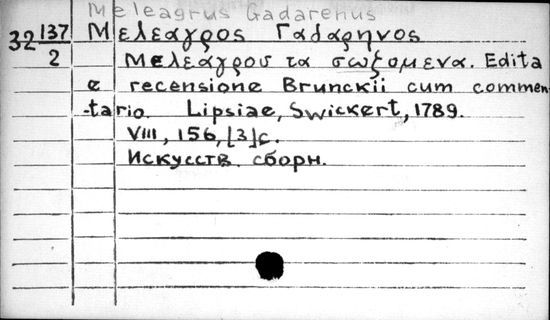 Meleagrus Gadarenus
32 137/2 Μελεαγρος Γαδαρηνος
Μελεαγρου τα σωξομενα. Edita
e recensione Brunckii cum commen-
-tario. Lipsiae, Swickert, 1789.
VIII, 156, [3] c.
Искусств. сборн.